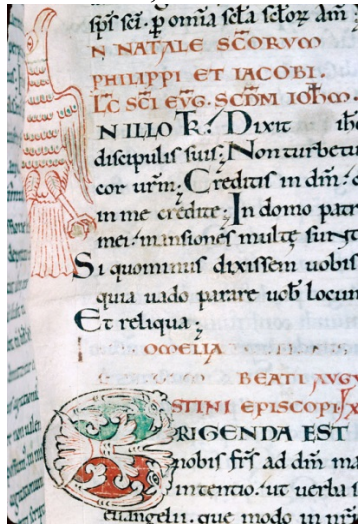 spſ scī. p omia scla sclox am
N NATALE SCŌRVM
PHILIPPI ET IACOBI.
LC SCĪ EVG. SCDM IOHM.
N ILLO TR. Dixit ihc
discipulis suis; Non turbetur
cor urm; Creditis in dm. &
in me credite; In domo patr
mei. mansiones multę sunt
Si quominus dixissem uobis
quia uado parare uob locum
Et reliqua;
OMELIA
BEATI AVGV
STINI EPISCOPI;
RIGENDA EST
nobis frs ad dm ma
intentio. ut uerba s
euangelii. que modo in